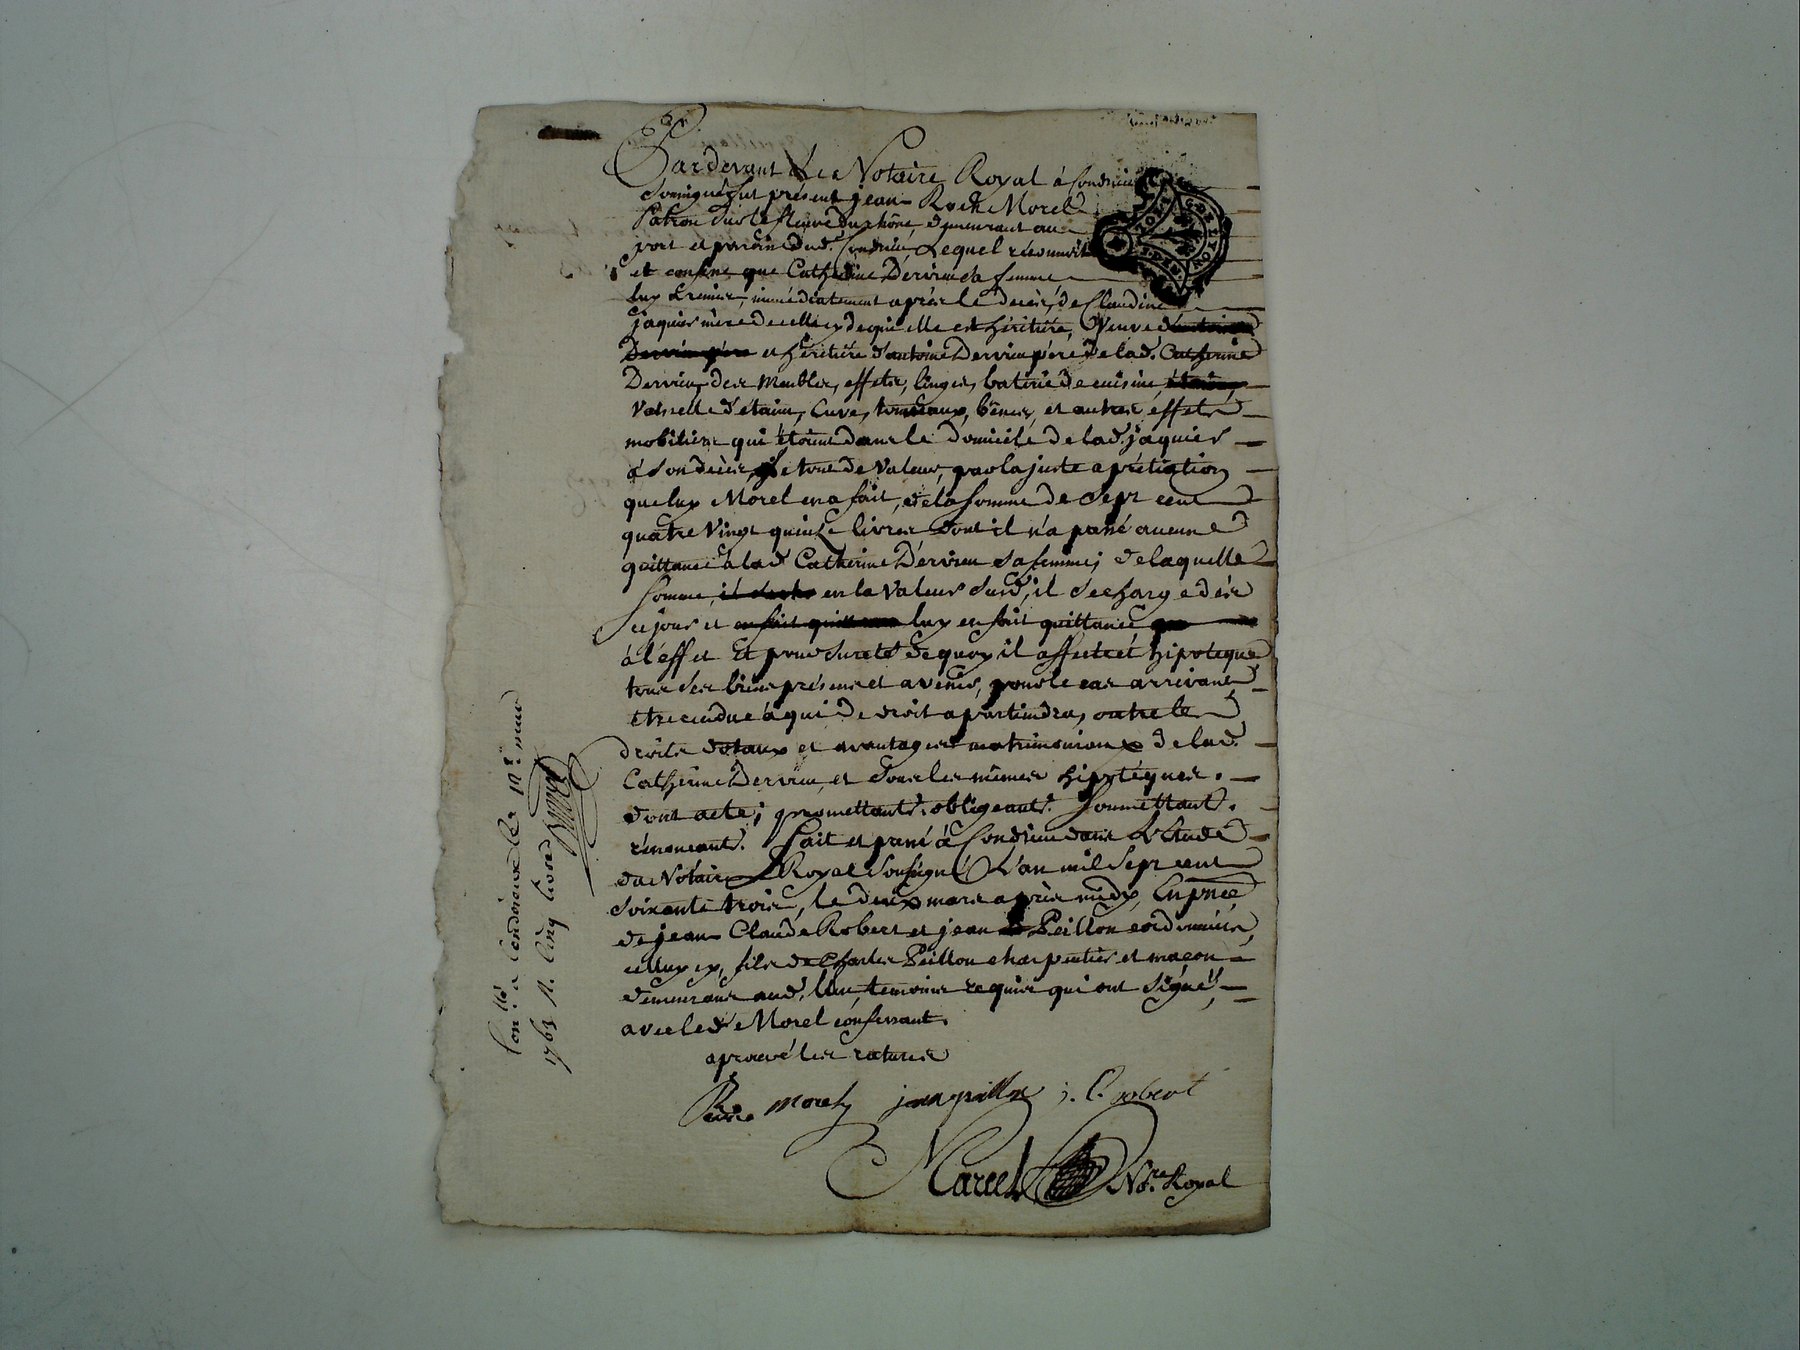 Pardevant Le Notaire Royal à Condrieu
soussigné fut présent jean Roch Morel
Patron sur le fleuve du rhône, demeurant au
port et paroisse dud. Condrieu, Lequel reconnoit
et confesse que Catherine Dervieu sa femme
luy a remis, immédiatement après le decès, de Claudine
jaquier mère de celle cy de qui elle est héritière, Veuve
et héritière d'antoine Dervieu père de lad. Catherine
Dervieu, des Meubles, effets, linges, baterie de cuisine
Vaisselle d'étaim, Cuve, tonneaux, bênes, et autres effets
mobiliers qui étoient dans le domicile de lad. jaquier
à son decès, et tous de Valeur, par la juste apretiation
que luy Morel en a fait, de la somme de sept cent
quatre Vingt quinze livres dont il n'a passé aucune
quittance a lad. Catherine Dervieu sa femme, de laquelle
somme, en la Valeur susd., il se charge dès
ce jour et luy en fait quittance
à l'effet et pour sureté de quoy il affecte et hipoteque
tous ses biens présens et avenir, pour le cas arrivant
etre rendue à qui de droit apartiendra, outre les
droits dotaux et avantages matrimoniaux de lad.
Catherine Dervieu, et sous les mêmes hipotéques.
dont acte, promettant. obligeant. soumettant.
rénonceant. fait et passé à Condrieu dans L'Etude
du Notaire Royal soussigné L'an mil sept cent
soixante trois, le deux mars après midy, En pnce
de jean Claude Robert et jean Peillon cordonnier,
celluy cy, fils de Charles Peillon charpentier et maçon
demeurans aud. lieu, temoins requis qui ont signé,
avec led. Morel confessant.
aprouvé les ratures
morel jean peillon j. C. robert
Marcel No.re Royal
Con.llé a Condrieu le mars
1763 R. Cinq livres